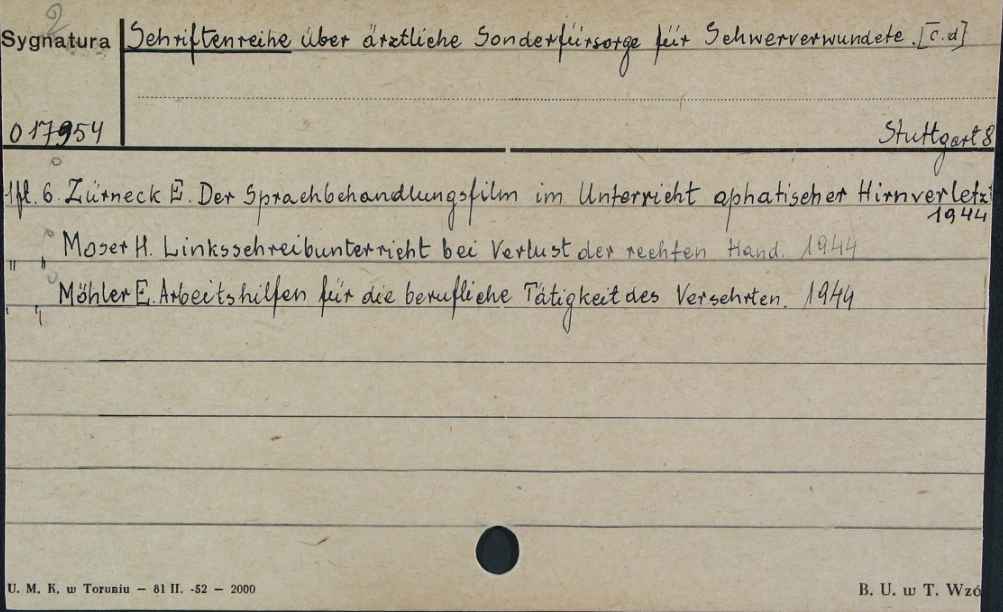 2
Sygnatura
Schriftenreihe über ärztliche Sonderfürsorge für Schwerverwundete. [C.d]
017954
Stuttgart 8
Hft. 6. Zürneck E. Der Sprachbehandlungsfilm im Unterricht aphatischer Hirnverletz
1944
" " Moser H. Linksschreibunterricht bei Verlust der rechten Hand. 1944
" " Möhler E. Arbeitshilfen für die berufliche Tätigkeit des Versehrten. 1944
U. M. K. w Toruniu — 81 II. -52 — 2000
B. U. w T. Wzó